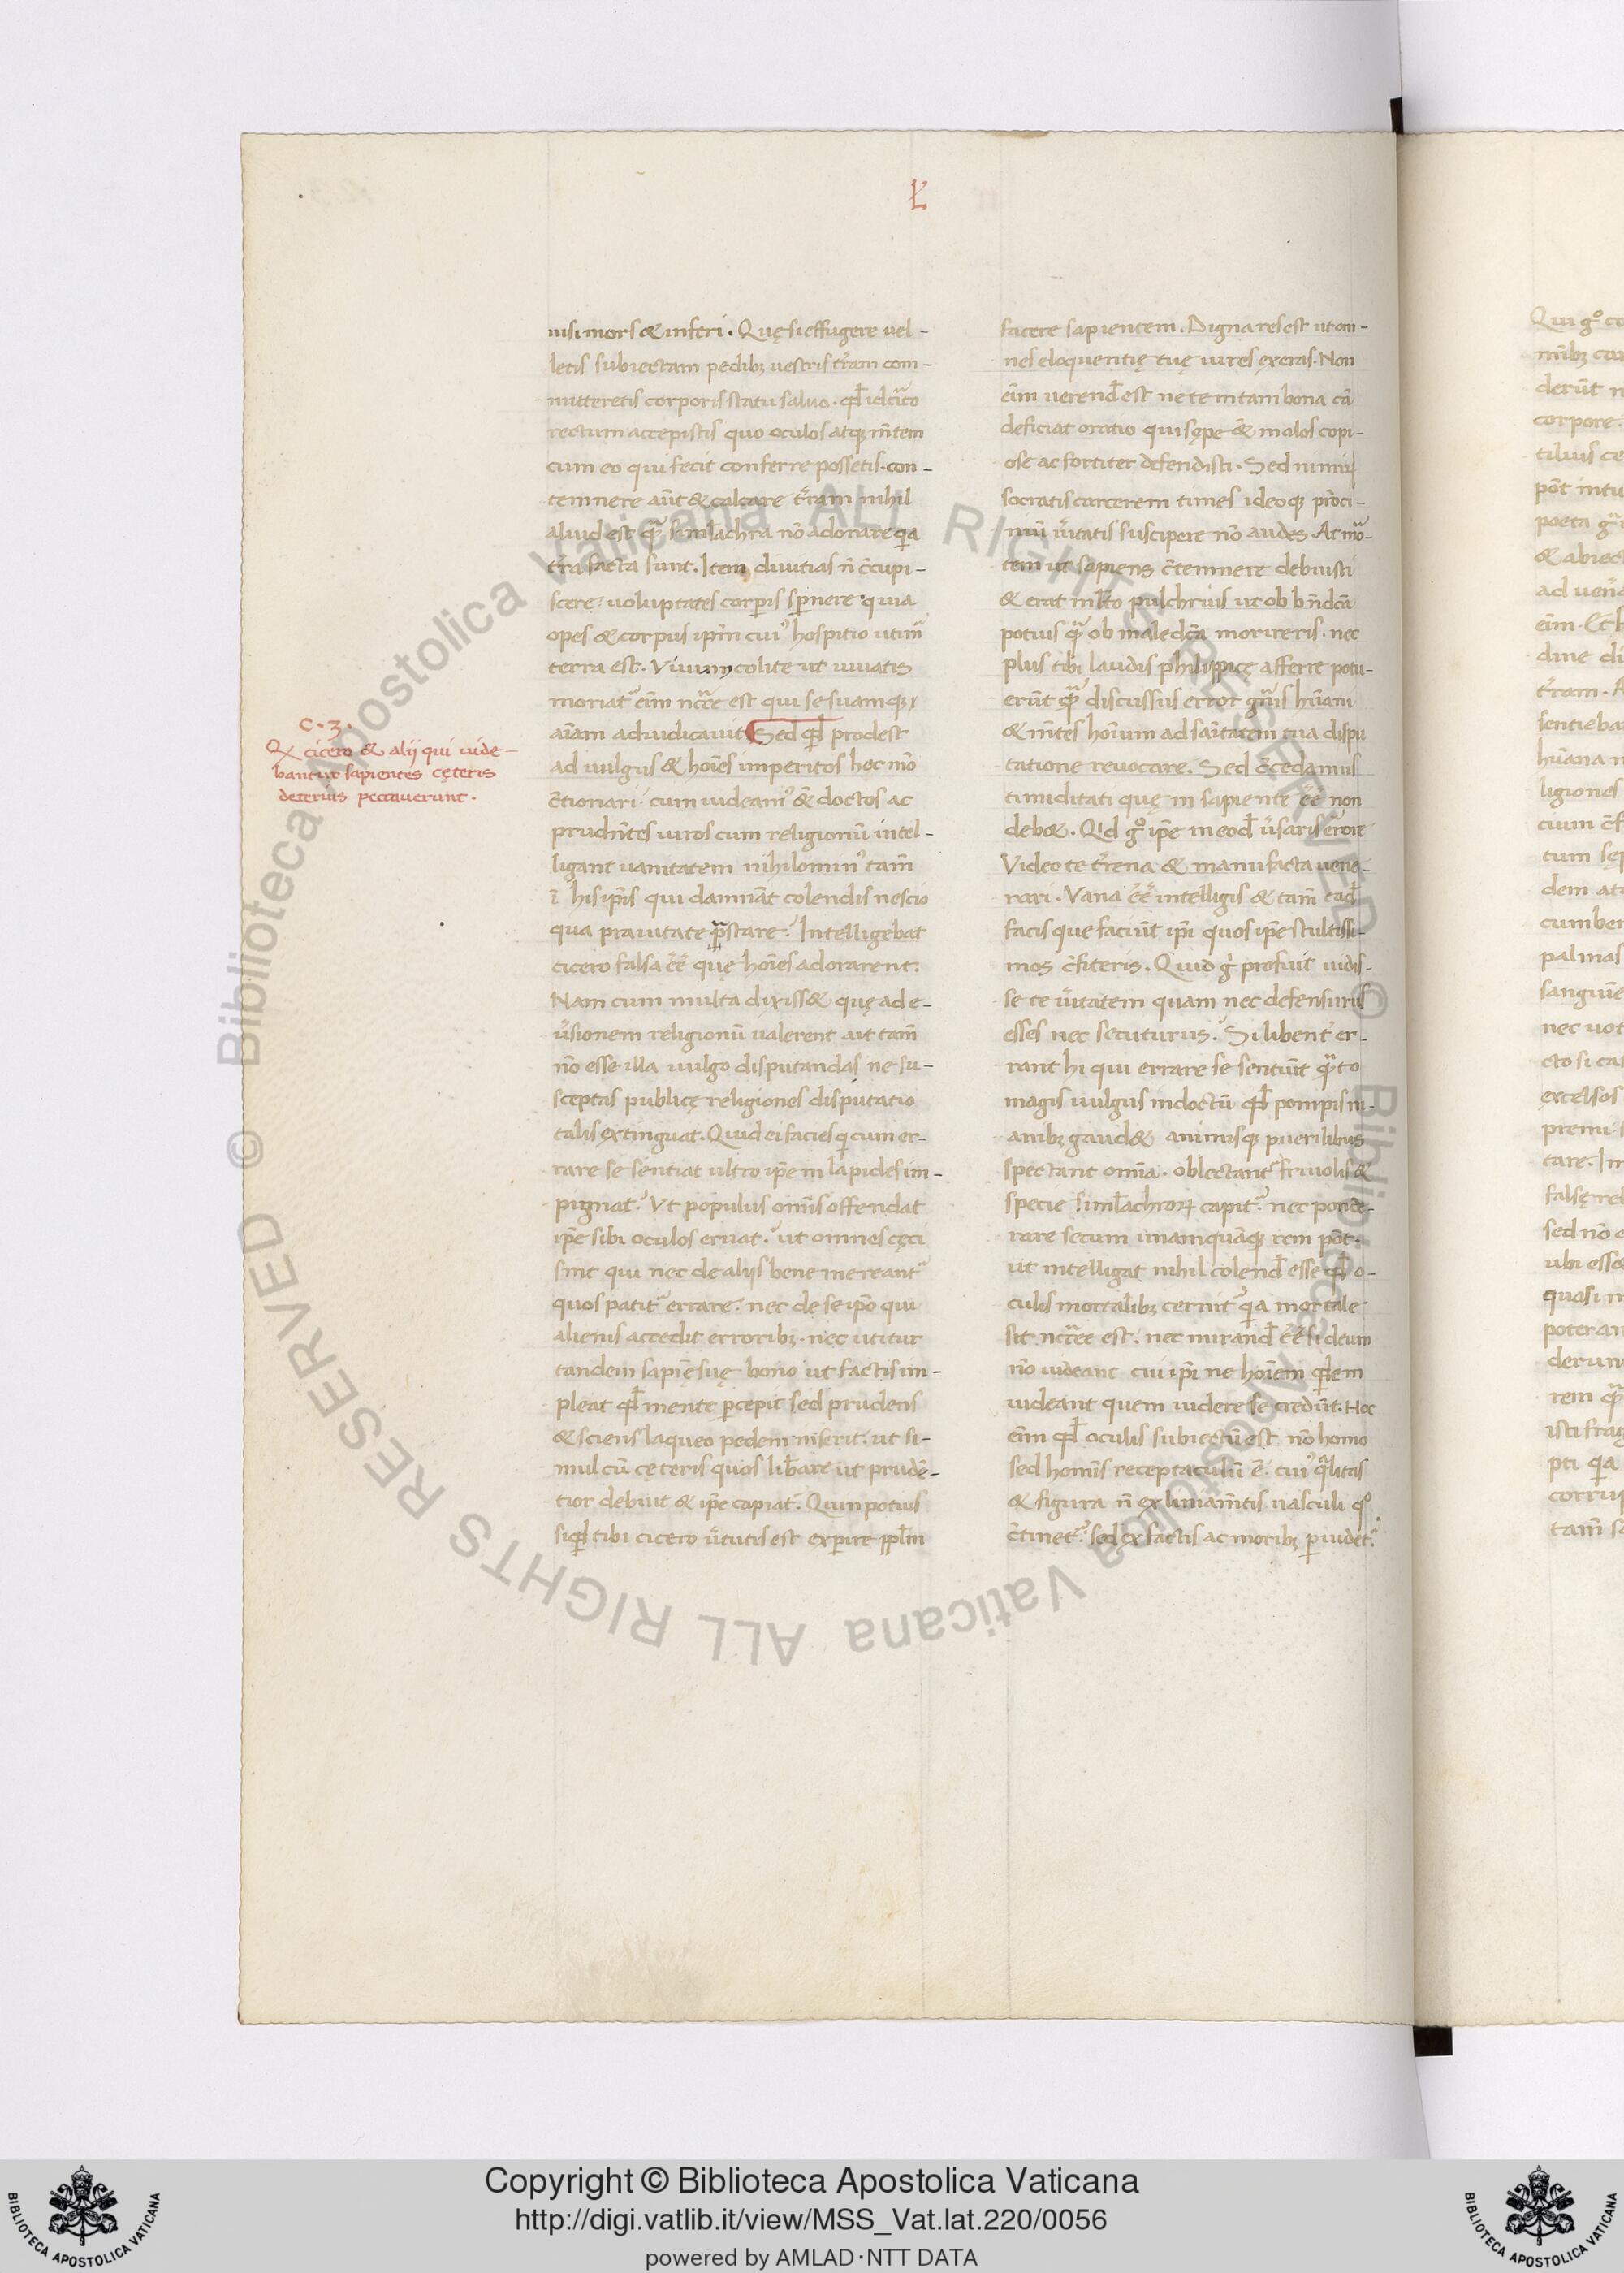 Ł
nisi mors & inferi. Quę si effugere uel-
letis subiectam pedibꝫ uestris tr̃am com-
mitteretis corporis statu saluo. qd̃ idcirco
rectum accepistis quo oculos atqꝫ m̃tem
cum eo qui fecit conferre possetis. con-
temnere aũt & calcare tr̃am nihil
aliud est qᷓ simlachra nõ adorare qꝛa
t̃ra facta sunt. Item diuitias ñ c̃cupi-
scere: uoluptates corpis spnere quia
opes & corpus ip̃m cui' hospitio utim̃
terra est. Viuum colite ut uiuatis
moriat' eĩm nc̃cẽ est qui se suamqꝫ
aĩam adiudicauit Sed qd̃ prodest
ad uulgus & hoĩes imperitos hoc mõ
c̃tionari: cum uideam' & doctos ac
prudñtes uiros cum religionũ intel-
ligant uanitatem nihilomin' tam̃
ĩ his ip̃is qui damnãt colendis nescio
qua prauitate p̃stare? Intelligebat
cicero falsa ẽẽ quę hoĩes adorarent.
Nam cum multa dixiss& quę ad e-
ũsionem religionũ ualerent ait tam̃
nõ esse illa uulgo disputanda, ne su-
sceptas publicę religiones disputatio
talis extinguat. Quid ei facies q cum er-
rare se sentiat ultro ip̃e in lapides im-
pignat? Vt populus om̃is offendat
ip̃e sibi oculos eruat? ut omnes cęci
sint qui nec de alijs bene mereant'
quos patit' errare: nec de se ip̃o qui
alienis accedit erroribꝫ. nec utitur
tandem sapiẽ suę bono ut factis im-
pleat qd̃ mente pcepit sed prudens
& sciens laqueo pedem niserit. ut si-
mul cũ cęteris quos lib̃are ut prudẽ-
tior debuit & ip̃e capiat'. Quin potius
siqd̃ tibi cicero ũtutis est expire ppl̃m
facere sapientem. Digna res est ut om-
nes eloquentię tuę uires exeras. Non
eĩm uerend̃ est ne te in tam bona cã
deficiat oratio qui sępe & malos copi-
ose ac fortiter defendisti. Sed nimiꝝ
socratis carcerem times ideoqꝫ pr̃oci-
niũ ũitatis suscipere nõ audes. At mo-
tem ut sapiens c̃temnere debuisti
& erat ml̃to pulchrius ut ob bñdc̃a
potius qᷓ ob maledc̃a morireris. nec
plus tibi laudis philippicę afferre potu-
erũt qᷓ discussus error gñis hũani
& m̃tes hoĩum ad sañitatem tua dispu
tatione reuocare. Sed c̃cedamus
timiditati quę in sapiente ẽẽ non
deb&. Qid gº ip̃e in eod̃ ũsaris errore
Video te tr̃rena & manu facta uene-
rari. Vana ẽẽ intelligis & tam̃ ead̃
facis que faciũt ip̃i quos ip̃e stultissi-
mos c̃fiteris. Quid g̃ profuit uidis-
se te ũitatem quam nec defensurus
esses nec secuturus? Si libent' er-
rant hi qui errare se sentiũt qᷓto
magis uulgus indoctũ qd̃ pompis in-
anibꝫ gaud& animisqꝫ puerilibus
spectant om̃ia. oblectant' friuolis &
specie siml̃achroꝝ capit': nec ponde-
rare secum unamquãqꝫ rem põt.
ut intelligat nihil colend̃ esse qd̃ o-
culis mortalibꝫ cernit' qꝛa mortale
sit nc̃cẽ est. nec mirand̃ ẽẽ si deum
nõ uideant cui ip̃i ne hoĩem qd̃em
uideant quem uidere se credũt. Hoc
eĩm qd̃ oculis subiectũ est nõ homo
sed homĩs receptaculũ ẽ. cui' qᷓlitas
& figura ñ ex liniam̃tis uasculi qº
c̃tinet': sed ex factis ac moribꝫ puidet'.
c. 3.
Qꝫ cicero & alij qui uide-
bantur sapientes cęteris
deterius peccauerunt.
Copyright © Biblioteca Apostolica Vaticana
http://digi.vatlib.it/view/MSS_Vat.lat.220/0056
powered by AMLAD·NTT DATA
© Biblioteca Apostolica Vaticana ALL RIGHTS RESERVED
© Biblioteca Apostolica Vaticana ALL RIGHTS RESERVED
BIBLIOTECA APOSTOLICA VATICANA
BIBLIOTECA APOSTOLICA VATICANA